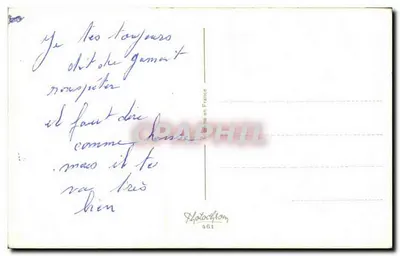 Je tes toujours
dit de jamait
rouspéter
il faut dire
comme
mais il te
va très
bien
CARTAPHIL
en France
Photochrom
903